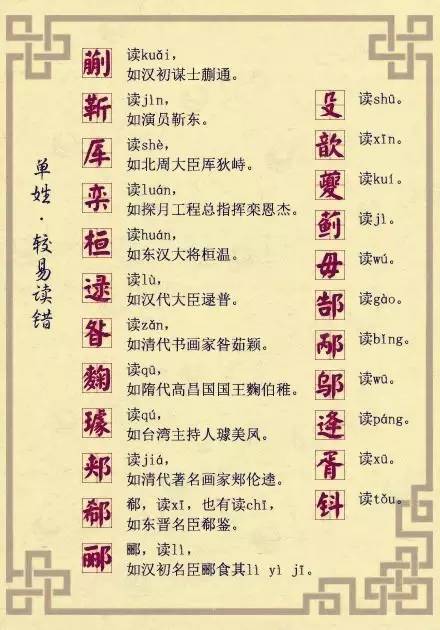 单姓·较易读错
蒯 读kuǎi，
如汉初谋士蒯通。
靳 读jìn，
如演员靳东。
厍 读shè，
如北周大臣厍狄峙。
栾 读luán，
如探月工程总指挥栾恩杰。
桓 读huán，
如东汉大将桓温。
逯 读lù，
如汉代大臣逯普。
昝 读zǎn，
如清代书画家昝茹颖。
麴 读qū，
如隋代高昌国国王麴伯稚。
璩 读qú，
如台湾主持人璩美凤。
郏 读jiá，
如清代著名画家郏伦逵。
郗 郗，读xī，也有读chī，
如东晋名臣郗鉴。
郦 郦，读lì，
如汉初名臣郦食其lì yì jī。
殳 读shū。
歆 读xīn。
夔 读kuí。
蓟 读jì。
毋 读wú。
郜 读gào。
邴 读bǐng。
邬 读wū。
逄 读páng。
胥 读xū。
钭 读tǒu。